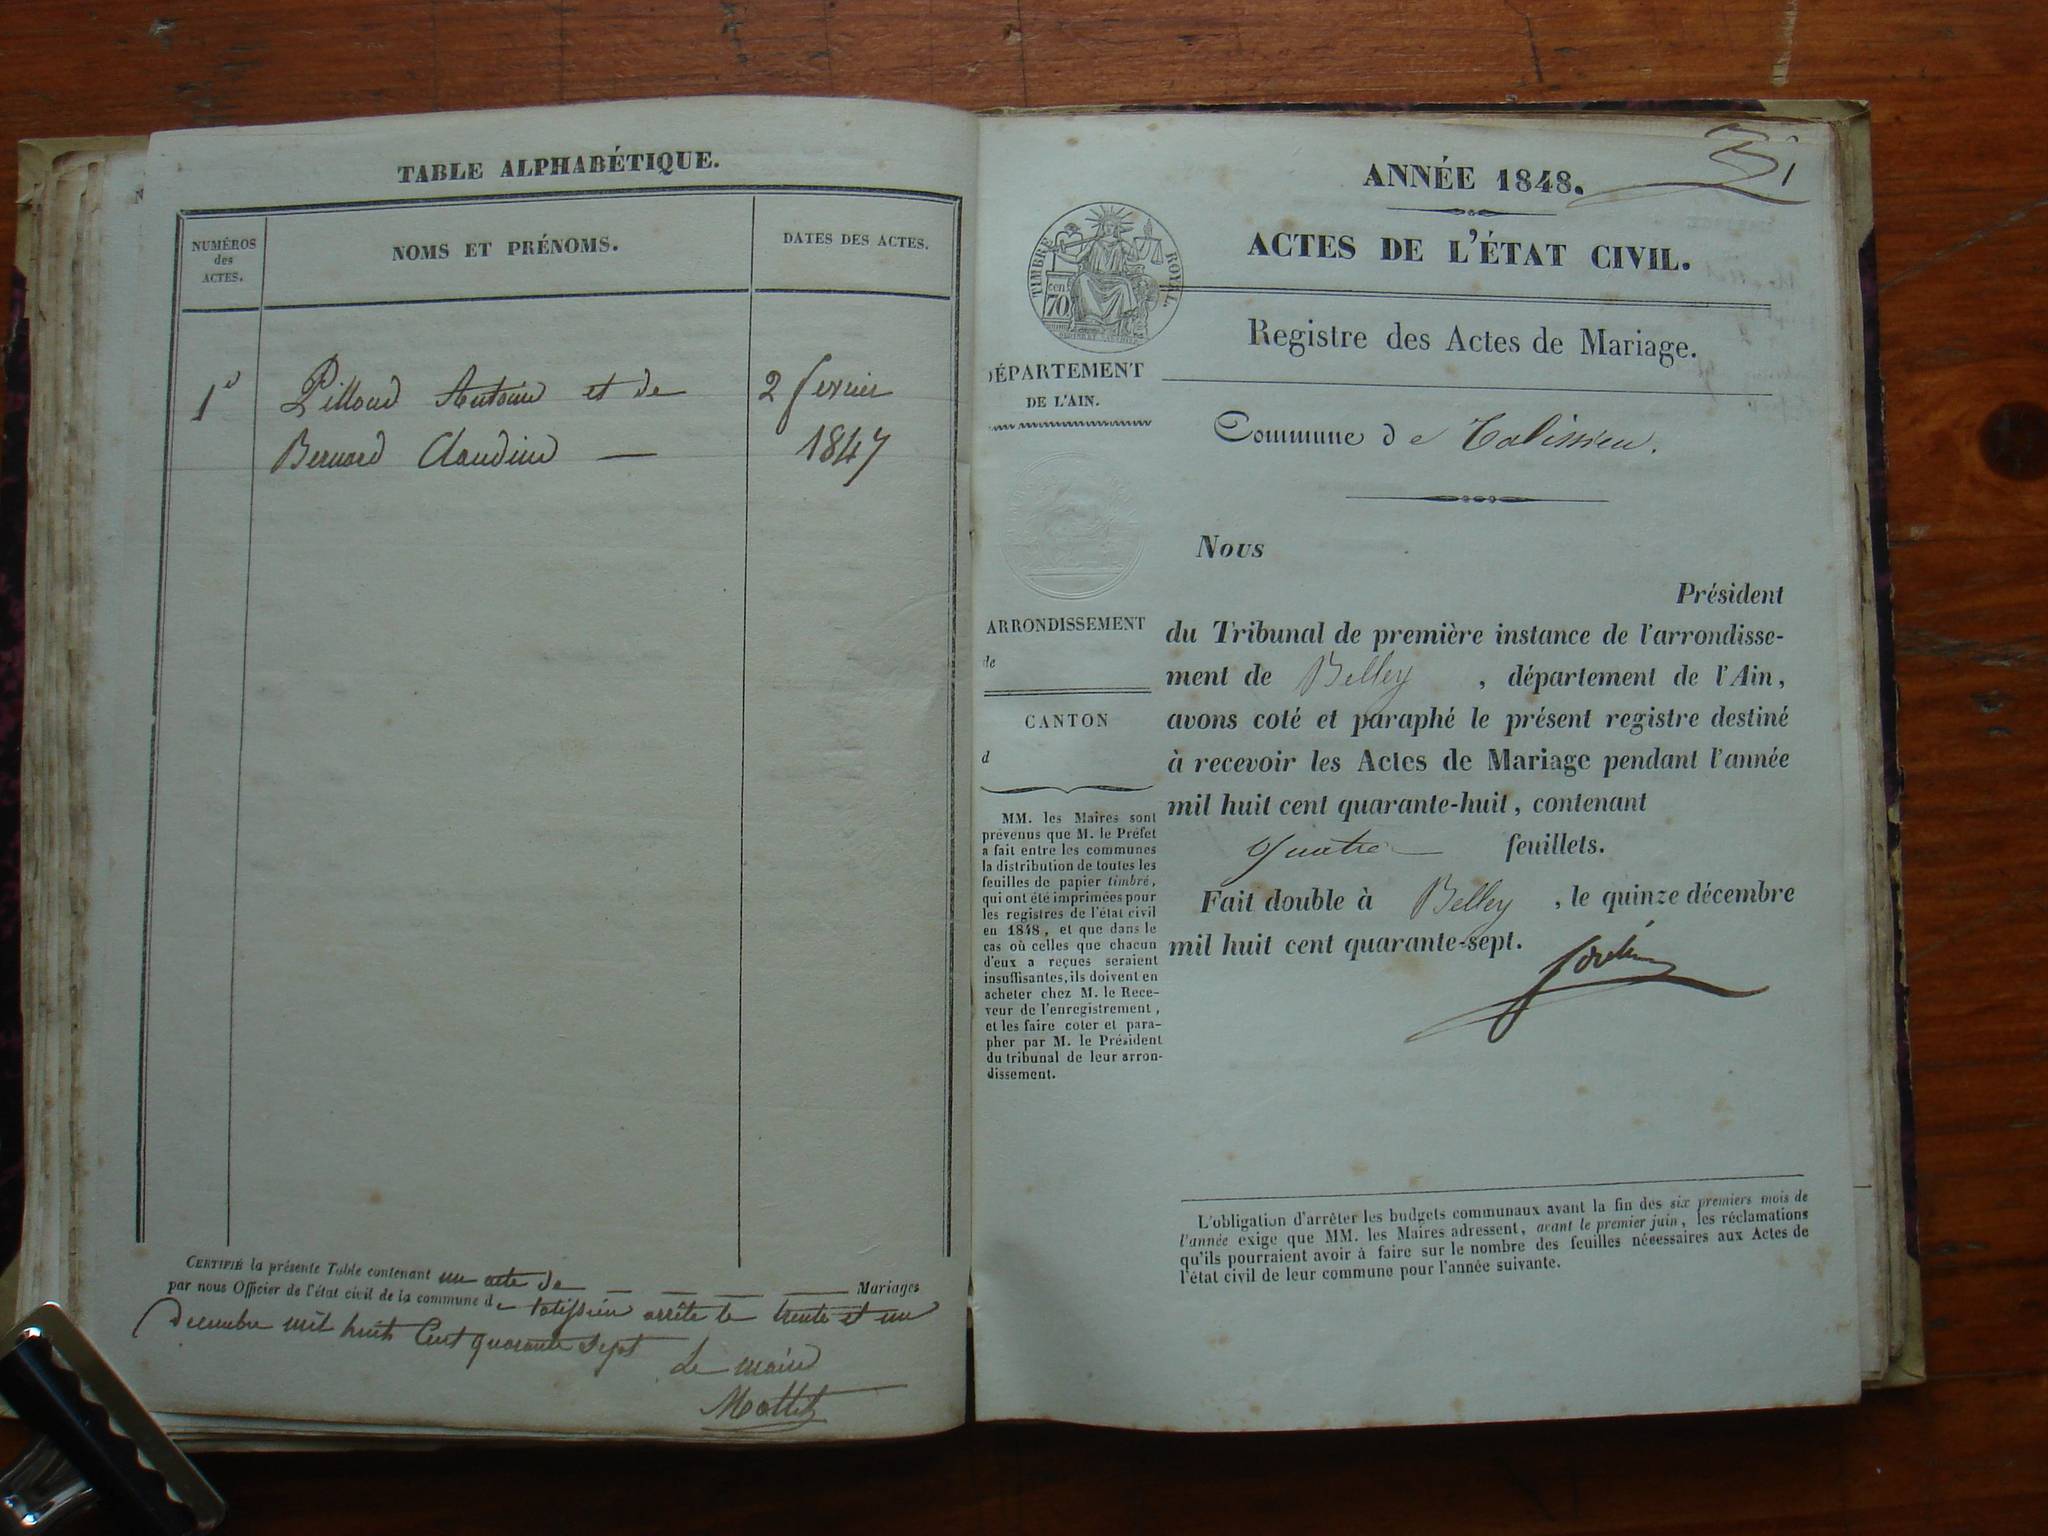 TABLE ALPHABÉTIQUE.
NUMÉROS
des
ACTES.
NOMS ET PRÉNOMS.
DATES DES ACTES.
1er
Pilloud Antoine et de
2 fevrier
Bernard Claudine —
1847
CERTIFIÉ la présente Table contenant un acte de — — — — Mariages
par nous Officier de l'état civil de la commune de talissieu arrêté le trente et un
decembre mil huit Cent quarante Sept
Le maire
Mottet
ANNÉE 1848.
ACTES DE L'ÉTAT CIVIL.
TIMBRE ROYAL.
cen
70
Registre des Actes de Mariage.
DÉPARTEMENT
DE L'AIN.
Commune de Talissieu.
Nous
Président
du Tribunal de première instance de l'arrondisse-
ment de Belley, département de l'Ain,
avons coté et paraphé le présent registre destiné
à recevoir les Actes de Mariage pendant l'année
mil huit cent quarante-huit, contenant
quatre — feuillets.
Fait double à Belley, le quinze décembre
mil huit cent quarante-sept.
ARRONDISSEMENT
de
CANTON
d
MM. les Maires sont
prévenus que M. le Préfet
a fait entre les communes
la distribution de toutes les
feuilles de papier timbré,
qui ont été imprimées pour
les registres de l'état civil
en 1848, et que dans le
cas où celles que chacun
d'eux a reçues seraient
insuffisantes, ils doivent en
acheter chez M. le Rece-
veur de l'enregistrement,
et les faire coter et para-
pher par M. le Président
du tribunal de leur arron-
dissement.
L'obligation d'arrêter les budgets communaux avant la fin des six premiers mois de
l'année exige que MM. les Maires adressent, avant le premier juin, les réclamations
qu'ils pourraient avoir à faire sur le nombre des feuilles nécessaires aux Actes de
l'état civil de leur commune pour l'année suivante.